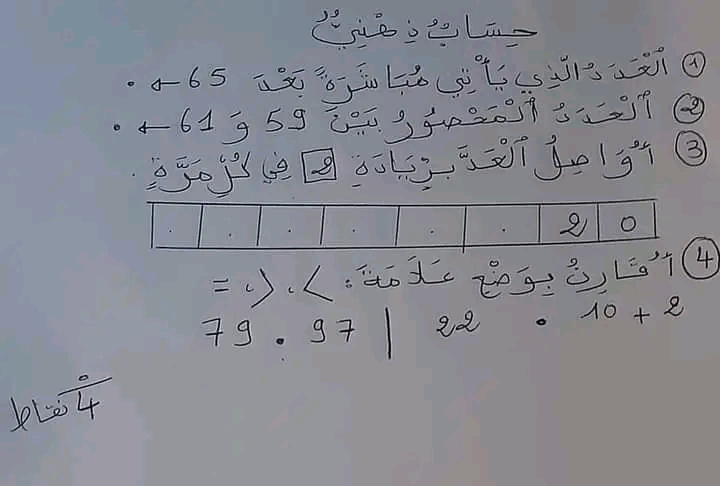 حِسَابٌ ذِهْنِيٌّ
① اَلْعَدَدُ الَّذِي يَأْتِي مُبَاشَرَةً بَعْدَ 65 ← .
② اَلْعَدَدُ اَلْمَحْصُورُ بَيْنَ 59 وَ 61 ← .
③ أُوَاصِلُ اَلْعَدَّ بِزِيَادَةِ 2 فِي كُلِّ مَرَّةٍ .
0 2 . . . . . .
④ أُقَارِنُ بِوَضْعِ عَلَامَةَ: < . > . =
79 . 97 | 22 . 10 + 2
4 نقاط